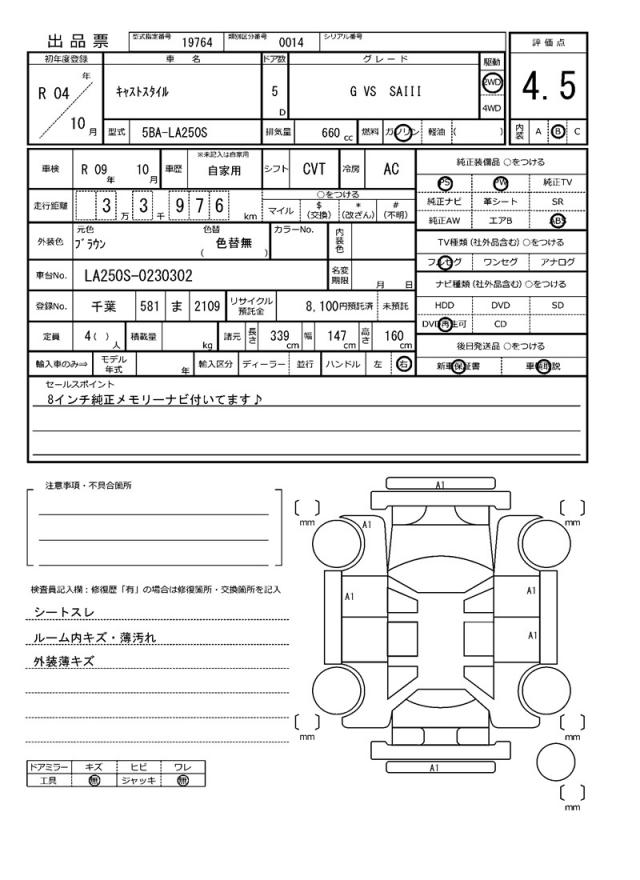 出品票 型式指定番号 19764 類別区分番号 0014 シリアル番号
初年度登録 車名 ドア数 グレード 駆動 評価点
R 04 年 10 月 キャストスタイル 5 D G VS SAIII 2WD 4WD 4.5
型式 5BA-LA250S 排気量 660 cc 燃料 ガソリン 軽油 ( ) 内装 A B C
車検 R 09 年 10 月 車歴 ※未記入は自家用 自家用 シフト CVT 冷房 AC
走行距離 3 万 3 千 9 7 6 km ○をつける マイル $ (交換) * (改ざん) # (不明)
外装色 元色 ブラウン 色替 ( 色替無 ) カラーNo. 内装色
車台No. LA250S-0230302 名変期限 月 日
登録No. 千葉 581 ま 2109 リサイクル預託金 8,100円預託済 未預託
定員 4( ) 人 積載量 kg 諸元 長さ 339 cm 幅 147 cm 高さ 160 cm
輸入車のみ⇒ モデル年式 年 輸入区分 ディーラー 並行 ハンドル 左 右
純正装備品 ○をつける
PS PW 純正TV
純正ナビ 革シート SR
純正AW エアB ABS
TV種類 (社外品含む) ○をつける
フルセグ ワンセグ アナログ
ナビ種類 (社外品含む) ○をつける
HDD DVD SD
DVD再生可 CD
後日発送品 ○をつける
新車保証書 車輌取説
セールスポイント
8インチ純正メモリーナビ付いてます♪
注意事項・不具合箇所
検査員記入欄：修復歴「有」の場合は修復箇所・交換箇所を記入
シートスレ
ルーム内キズ・薄汚れ
外装薄キズ
ドアミラー キズ ヒビ ワレ
工具 無 ジャッキ 無
A1
mm A1 mm
A1 A1
A1
mm mm
A1
mm